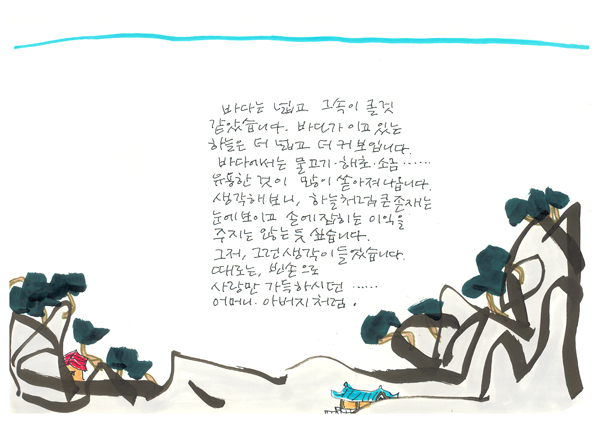 바다는 넓고 그속이 클것
같았습니다. 바다가 이고 있는
하늘은 더 넓고 더 커 보입니다.
바다에서는 물고기·해초·소금······
유용한 것이 많이 쏟아져나옵니다.
생각해보니, 하늘처럼 큰존재는
눈에 보이고 손에 잡히는 이익을
주지는 않는 듯 싶습니다.
그저, 그런 생각이 들었습니다.
때로는, 빈손으로
사랑만 가득하시던 ······
어머니·아버지처럼.